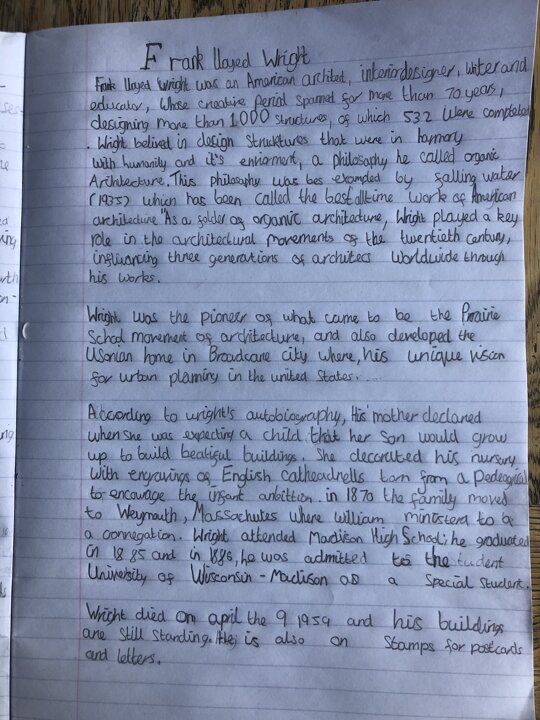 Frank lloyed Wright
Frank lloyed Wright was an American architect, interiordesigner, writer and
educator, Whose creative period spanned for more than 70 years,
designing more than 1000 structures, of which 532 were completed
. Wright belived in design strucktures that were in harmony
with humanity and it's enviorment, a philosophy he called organic
Architecture. This philosophy was bes exampled by falling water
(1935) which has been called the best alltime work of American
architecture "As a folder of organic architecture, Wright played a key
role in the architectural movements of the twentieth century,
influancing three generations of architecs worldwide through
his works.
Wright was the pioneer of what came to be the Prairie
School movement of architecture, and also developed the
Usonian home in Broadcare city where, his unique vison
for urban planning in the united States.
According to wright's autobiography, His mother declared
when she was expecting a child that her son would grow
up to build beatiful buildings. She decorated his nursery
With engravings of English catheadrells torn from a
to encourage the infant anbittion. in 1870 the family moved
to Weymouth, Massachutes where william ministerd to of
a connegation. Wright attended Madison High School; he graduated
in 1885 and in 1886, he was admitted to the tudent
University of Wisconsin-Madison as a Special Student.
Wright died on april the 9 1959 and his buildings
are still standing. He, is also on Stamps for postcards
and letters.